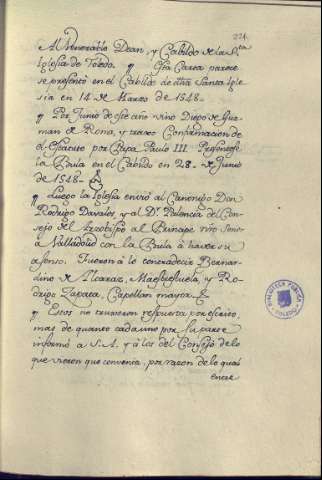 224.
Al Venerable Dean, y Cabildo de la Sta
Iglesia de Toledo. ¶ Esta Carta parece
se presentó en el Cabildo de dha Santa Igle
sia en 14 de Marzo de 1548.
¶ Por Junio de este año vino Diego de Guz
man de Roma, y traxo Confirmacion de
el Estatuto por Papa Paulo III. Presentose
la Bula en el Cabildo en 28 de Junio
de 1548.
¶ Luego la Iglesia envió al Canonigo Don
Rodrigo Davalos, y al Dr. Palencia del Con
sejo del Arzobispo al Principe nro Señor
a Valladolid con la Bula à haver su
asenso. Fueron à lo contradecir Bernar
dino de Alcaraz, Maestrescuela, y Ro
drigo Zapata, Capellan mayor.
¶ Estos no truxeron respuesta por escrito,
mas de quanto cada uno por su parte
informó a S.A. y à los del Consejo de lo
que vieron que convenia, por razon de lo qual
entre
BIBLIOTECA PUBLICA
TOLEDO